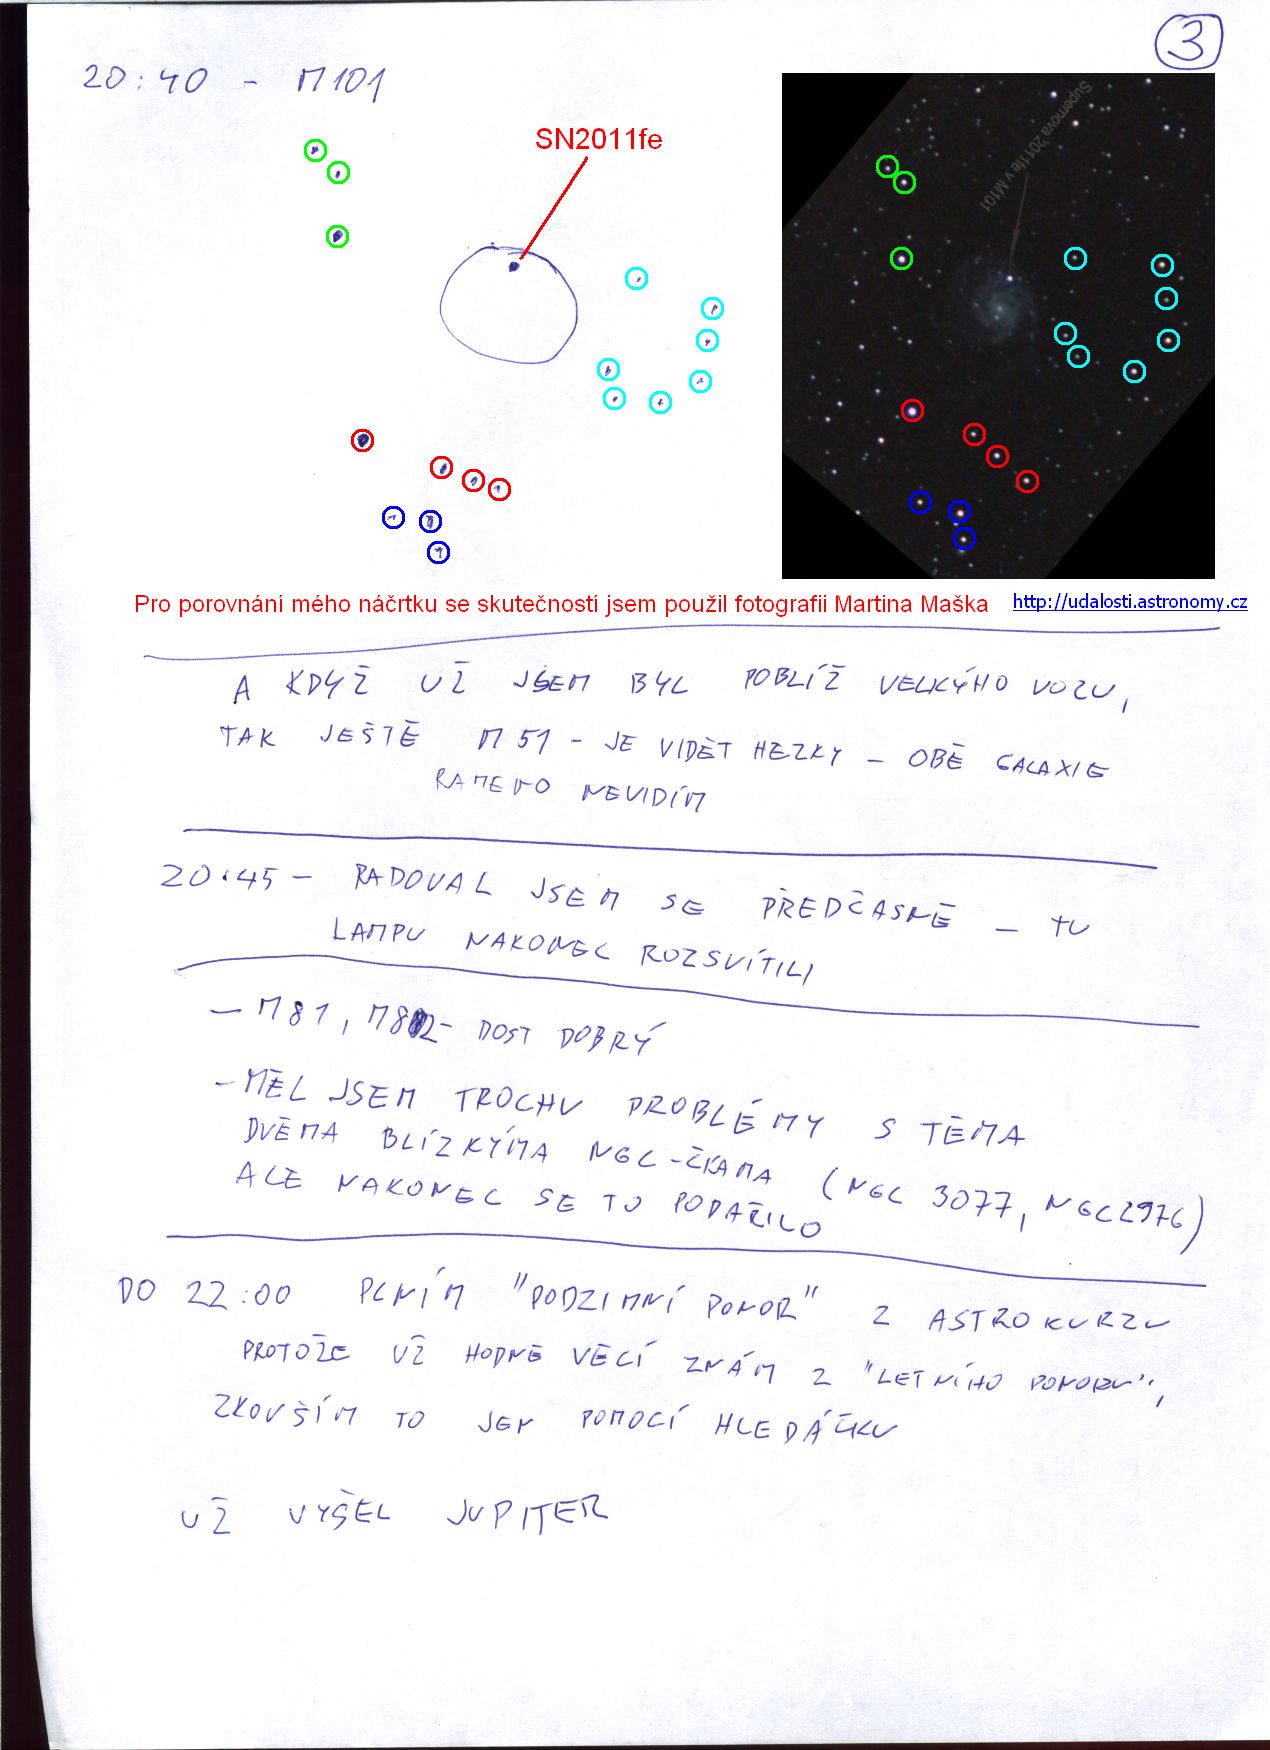 3
20:40 - M101
SN2011fe
Supernova 2011fe v M101
Pro porovnání mého náčrtku se skutečností jsem použil fotografii Martina Maška http://udalosti.astronomy.cz
A KDYŽ UŽ JSEM BYL POBLÍŽ VELKÝHO VOZU,
TAK JEŠTĚ M51 - JE VIDĚT HEZKY - OBĚ GALAXIE
RAMENO NEVIDÍM
20:45 - RADOVAL JSEM SE PŘEDČASNĚ - TU
LAMPU NAKONEC ROZSVÍTILI
- M81, M82 - DOST DOBRÝ
- MĚL JSEM TROCHU PROBLÉMY S TĚMA
DVĚMA BLÍZKÝMA NGC-ČKAMA (NGC 3077, NGC2976)
ALE NAKONEC SE TO PODAŘILO
DO 22:00 PLNÍM "PODZIMNÍ PONOR" Z ASTROKURZU
PROTOŽE UŽ HODNĚ VĚCÍ ZNÁM Z "LETNÍHO PONORU",
ZKOUŠÍM TO JEN POMOCÍ HLEDÁČKU
UŽ VYŠEL JUPITER